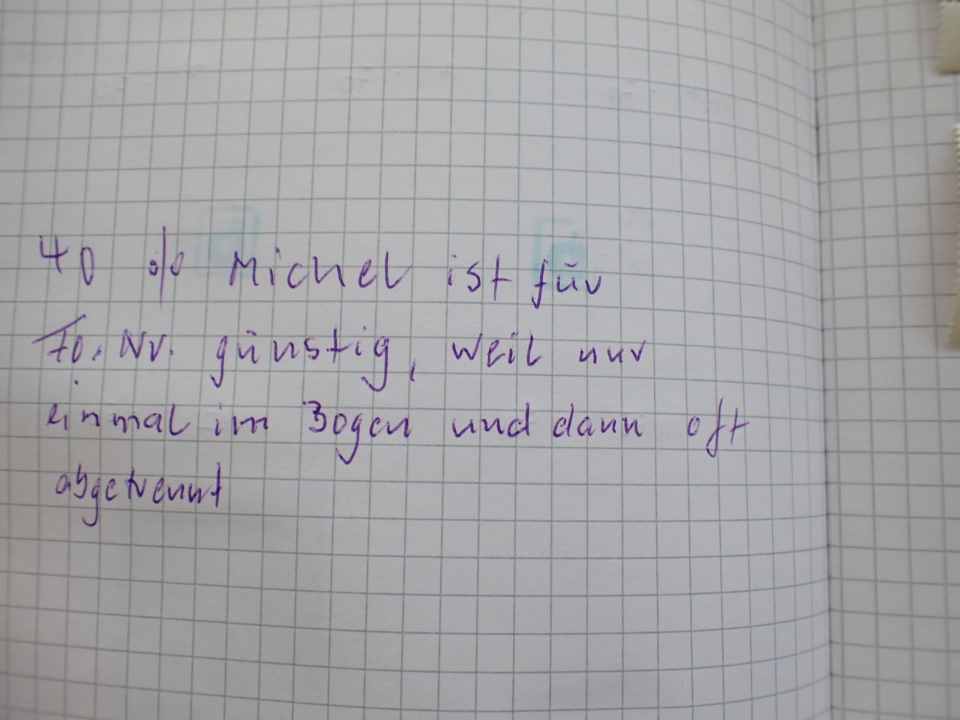 40 % Michel ist für
Fo. Nr. günstig, weil nur
einmal im Bogen und dann oft
abgetrennt